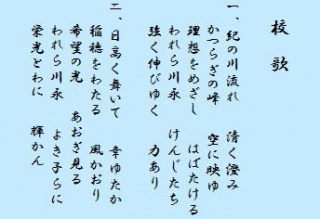 校歌
一、紀の川流れ　清く澄み
かつらぎの峰　空に映ゆ
理想をめざし　はばたける
われら川永　けんじたち
強く伸びゆく　力あり
二、日高く舞いて　幸ゆたか
稲穂をわたる　風かおり
希望の光　あおぎ見る
われら川永　よき子らに
栄光とわに　輝かん